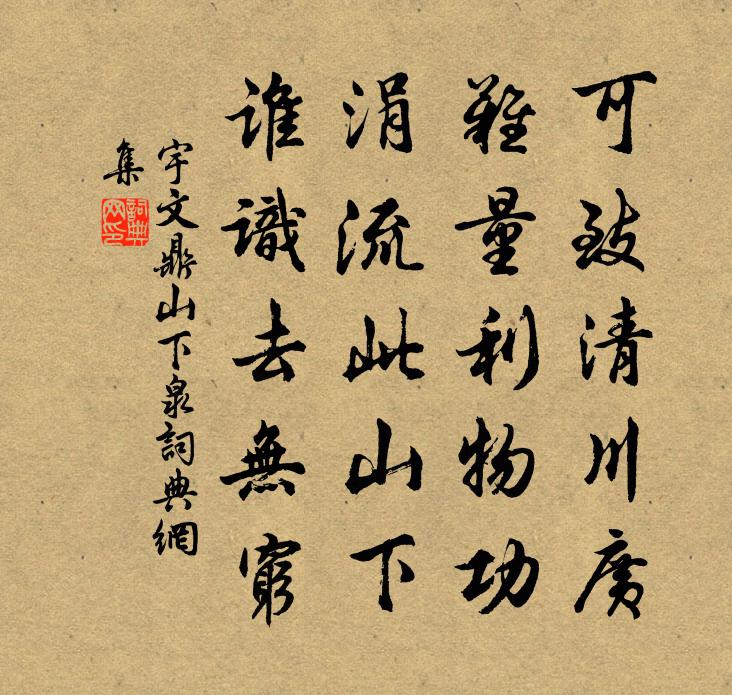 可致清川廣
難量利物功
涓流此山下
誰識去無窮
宇文鼎山下泉詞典網
集
詞典網印